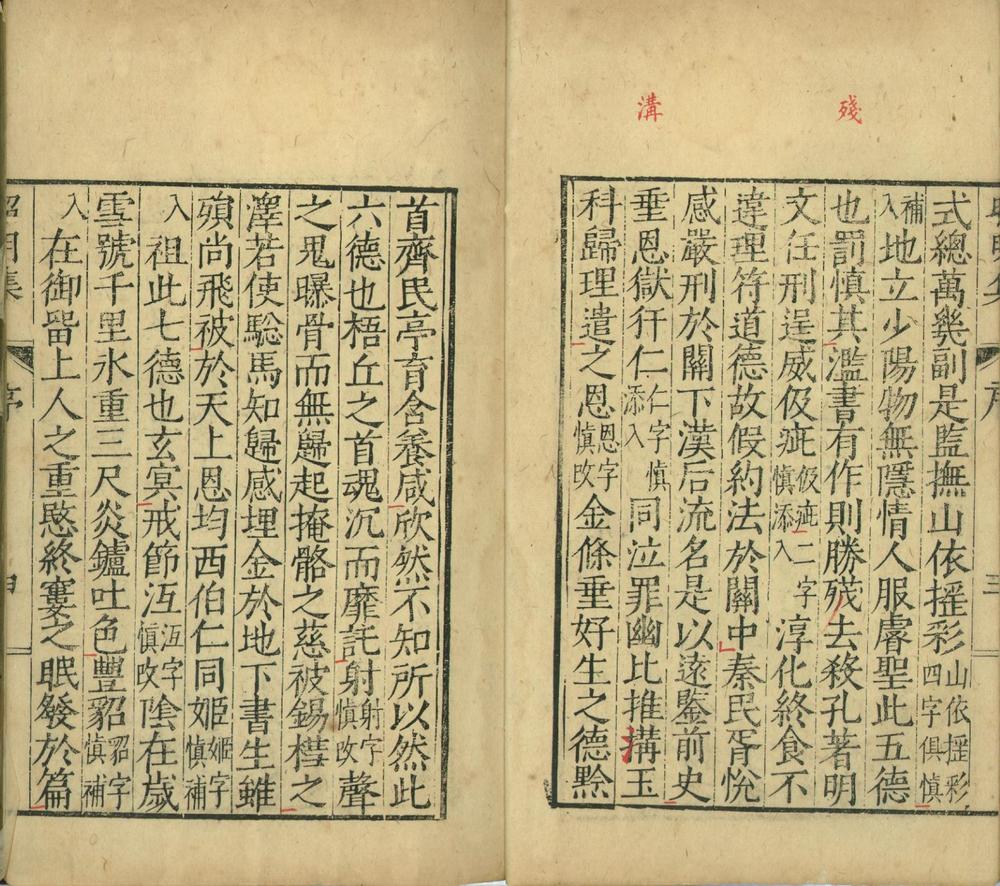 殘
溝
式總萬幾副是監撫山依搖彩山依搖彩四字俱慎
補入地立少陽物無隱情人服睿聖此五德
也罰慎其濫書有作則勝殘去殺孔著明
文任刑逞威伋疵伋疵二字慎添入淳化終食不
違理符道德故假約法於關中秦民胥悅
感嚴刑於闕下漢后流名是以遠鑒前史
垂恩獄犴仁仁字慎添入同泣罪幽比推搆玉
科歸理遣之恩恩字慎改金條垂好生之德黔
首齊民亭育含養咸欣然不知所以然此
六德也梧丘之首魂沉而靡託射射字慎改聲
之鬼曝骨而無歸起掩骼之慈被錫槥之
澤若使驄馬知歸感埋金於地下書生雖
殞尚飛被於天上恩均西伯仁同姬姬字慎補
入祖此七德也玄冥戒節沍沍字慎改陰在歲
雪號千里氷重三尺炎鑪吐色豐貂貂字慎補
入在御留上人之重愍終窶之眠發於篇
昭明集
序
三
四